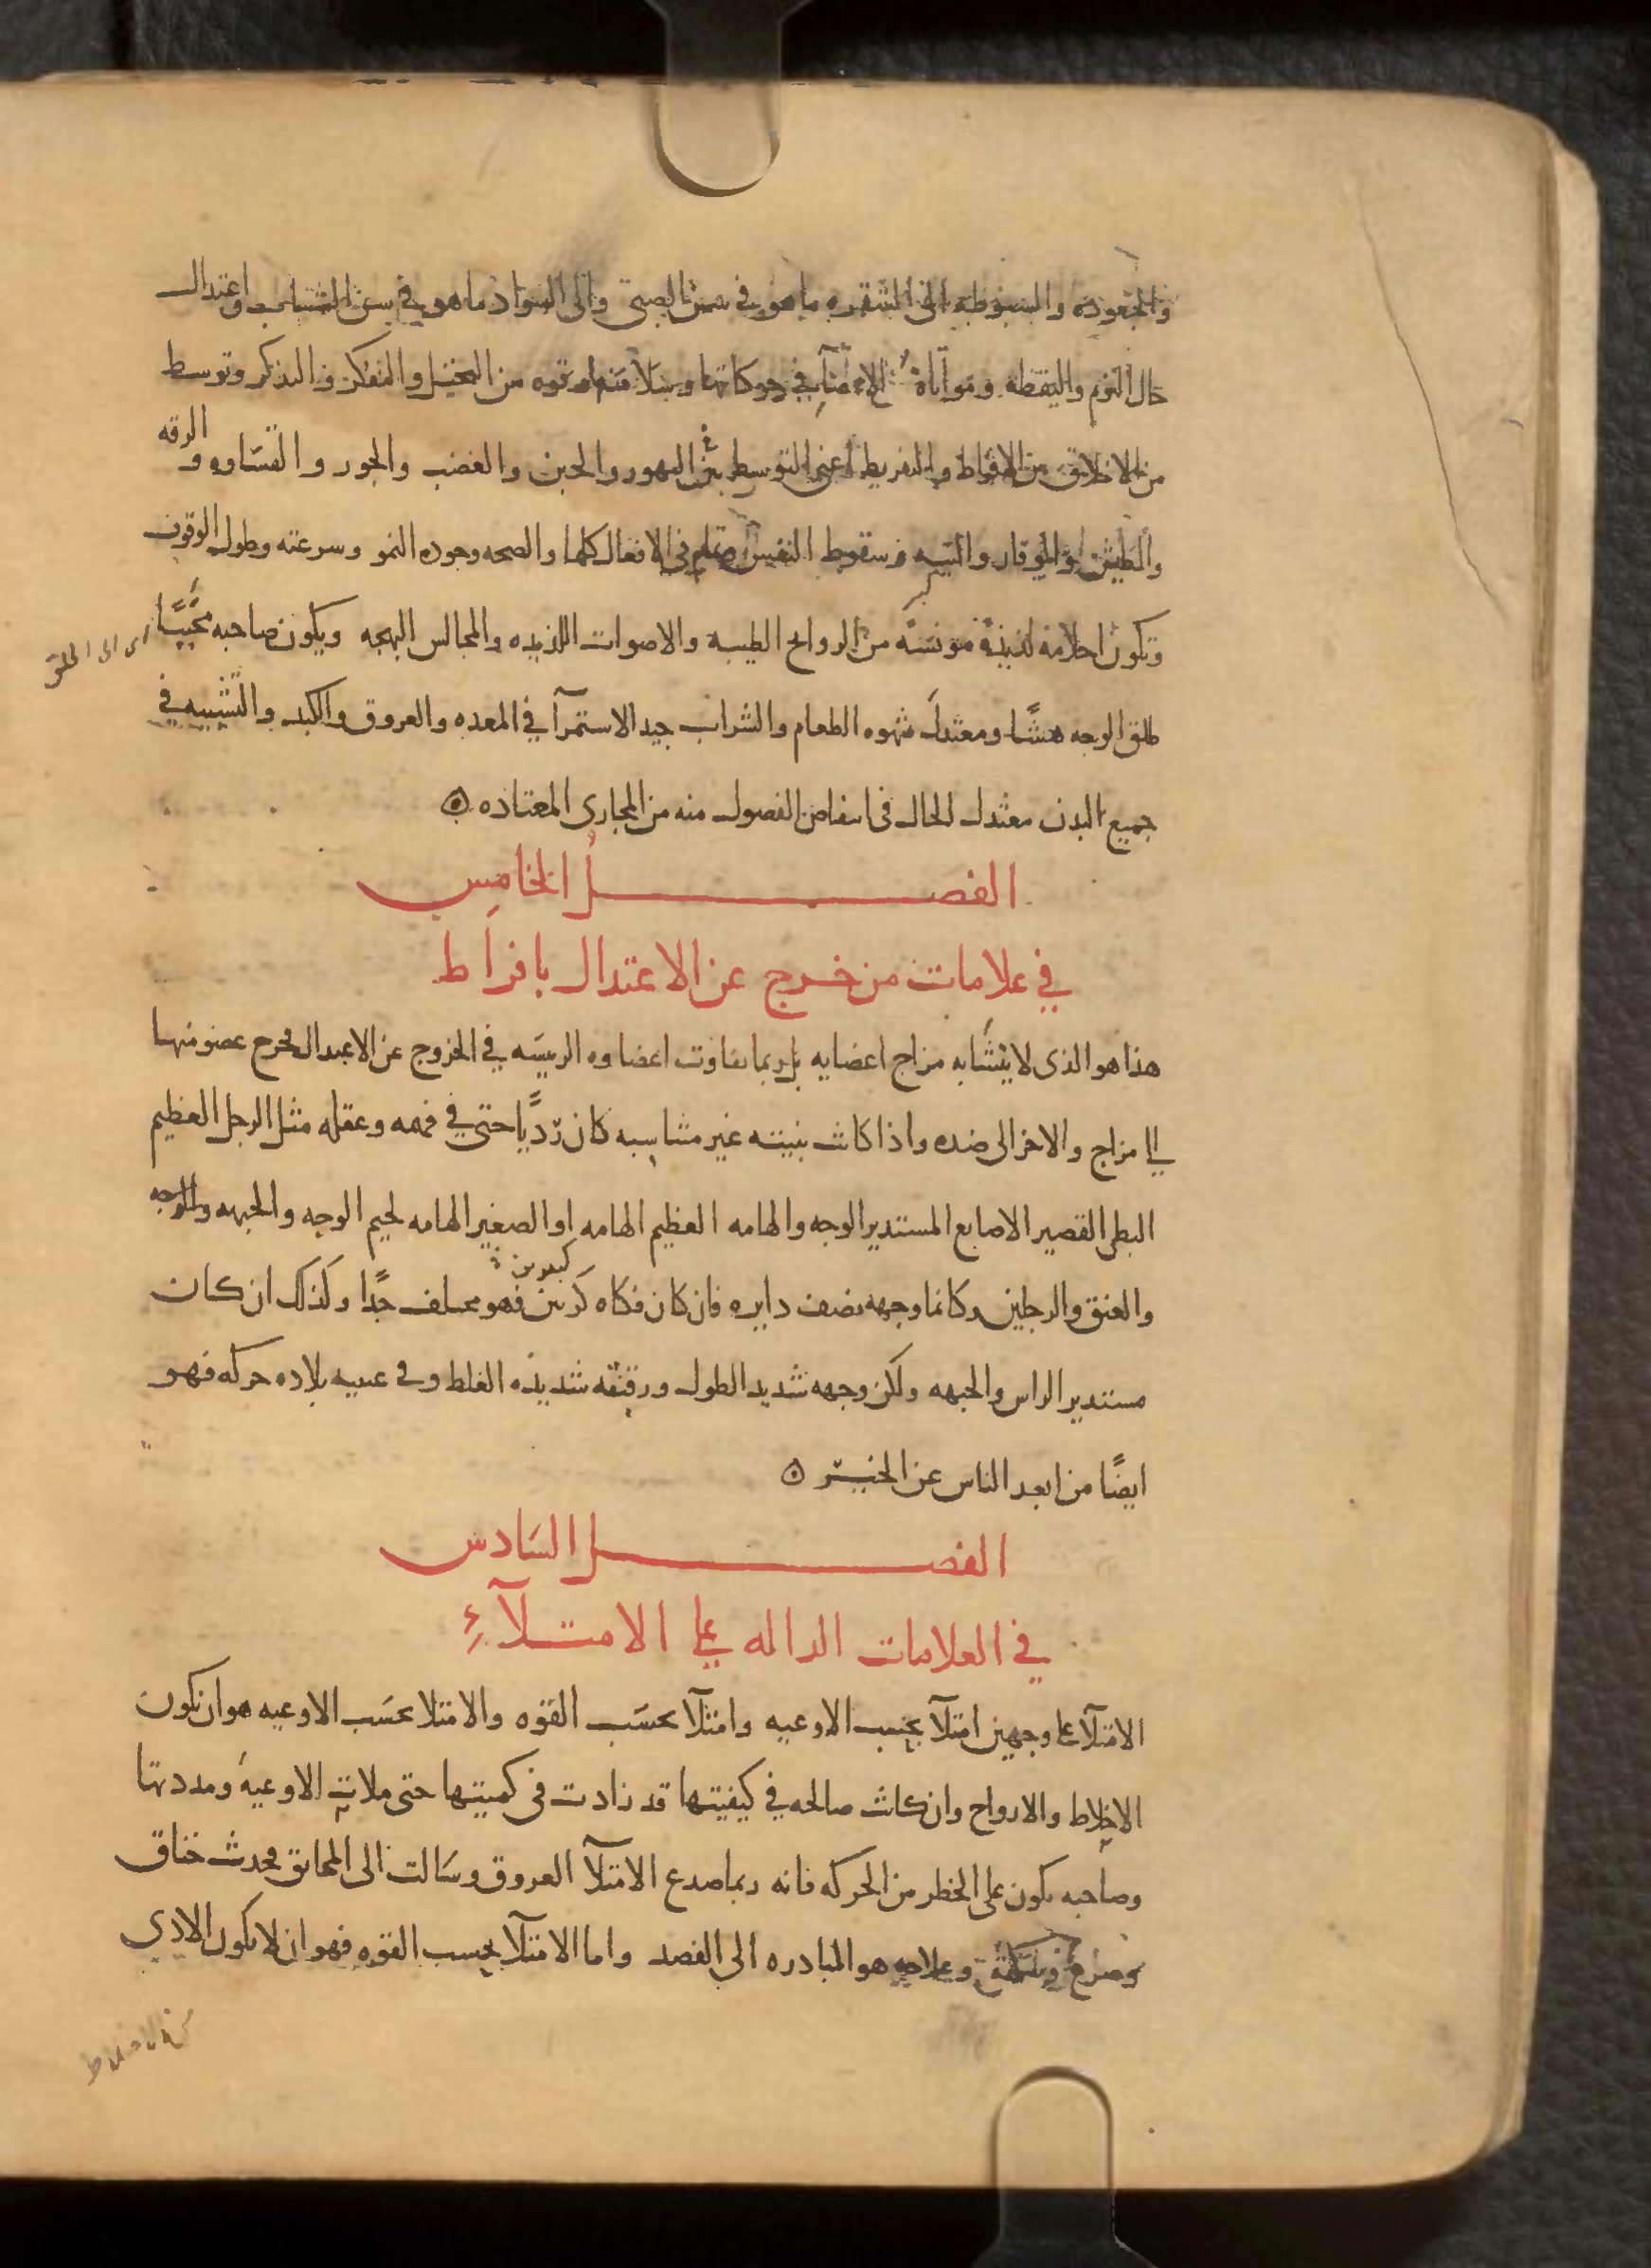 والجعوده والسبوطه الى الشقره ما هو في سن الصبى والى السواد ما هو في سن الشباب واعتدال
حال النوم واليقظه ومواتاة الاعضآء في حركاتها وسلامتها وقوه من التخيل والتفكر والتذكر وتوسط
من الاخلاق بين الافراط والتفريط اعنى التوسط بين التهور والجبن والغضب والجور والقساوه والرقه
والطيش والوقار والتيه وسقوط النفس تمام في الافعال كلها والصحه وجوده النمو وسرعته وطول الوقوف
وتكون احلامه لذيذة مونسه من الروايح الطيبه والاصوات اللذيذه والمجالس البهجه ويكون صاحبه محببًا
اى الى الخلق
طلق الوجه هشًا ومعتدل شهوه الطعام والشراب جيد الاستمرآ في المعده والعروق والكبد والتشبيه في
جميع البدن معتدل الحال في انتفاض الفصول منه من المجارى المعتاده
الفصل الخامس
في علامات من خرج عن الاعتدال بافراط
هذا هو الذى لا يتشابه مزاج اعضايه بل ربما تفاوت اعضاوه الرييسه في الخروج عن الاعتدال فخرج عضو منها
الى مزاج والاخر الى ضده واذا كانت بنيته غير متناسبه كان رديًا حتى في فهمه وعقله مثل الرجل العظيم
البطن القصير الاصابع المستدير الوجه والهامه العظيم الهامه او الصغير الهامه لحيم الوجه والجبهه والوجه
والعنق والرجلين وكانما وجهه نصف دايره فان كان فكاه كبيرين فهو مختلف جدًا وكذلك ان كان
مستدير الراس والجبهه ولكن وجهه شديد الطول ورقبته شديده الغلط وفى عينيه بلاده حركه فهو
ايضًا من ابعد الناس عن الخير
الفصل السادس
في العلامات الداله على الامتلآء
الامتلآ على وجهين امتلآ بحسب الاوعيه وامتلآ بحسب القوه والامتلا بحسب الاوعيه هو ان تكون
الاخلاط والارواح وان كانت صالحه في كيفيتها قد زادت في كميتها حتى ملات الاوعيه ومددتها
وصاحبه يكون على الخطر من الحركه فانه ربما صدع الامتلآ العروق وسالت الى المخانق فحدث خناق
وصرع وسكتة وعلاجه هو المبادره الى الفصد واما الامتلآ بحسب القوه فهو ان لا يكون الاذي